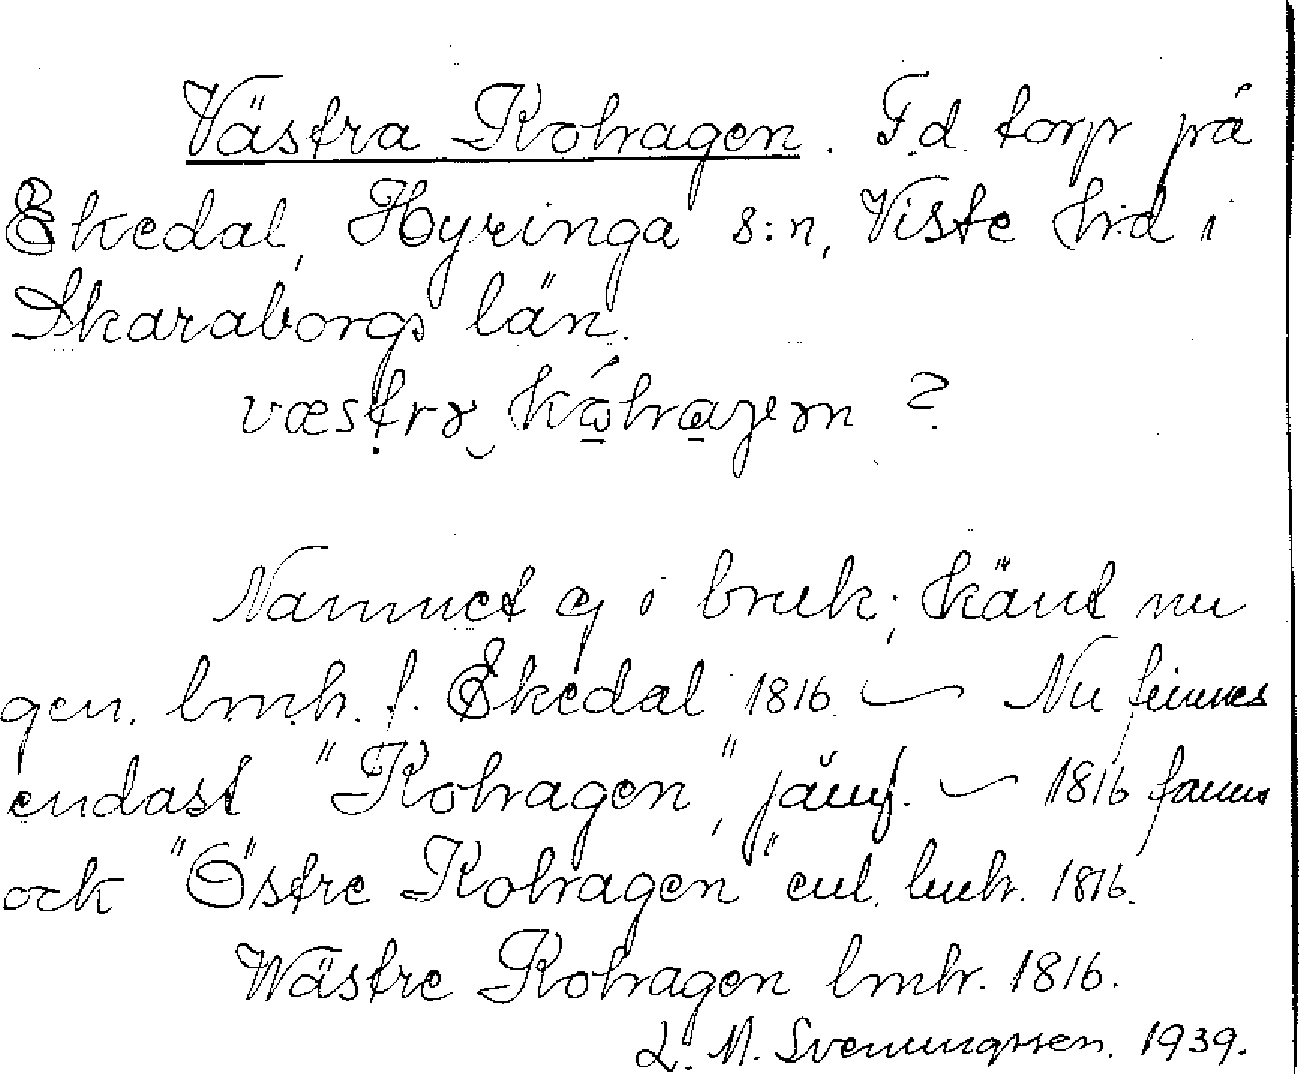 Västra Kohagen. F.d. torp på
Ekedal, Hyringa s:n, Viste hd i
Skaraborgs län.
Namnet ej i bruk; känt nu
gen. lmh. f. Ekedal 1816 — Nu finnes
endast "Kohagen", jämf. — 1816 fanns
ock "Östre Kohagen" enl. lmh. 1816.
Wästre Kohagen lmh. 1816.
L. M. Svenungssen. 1939.